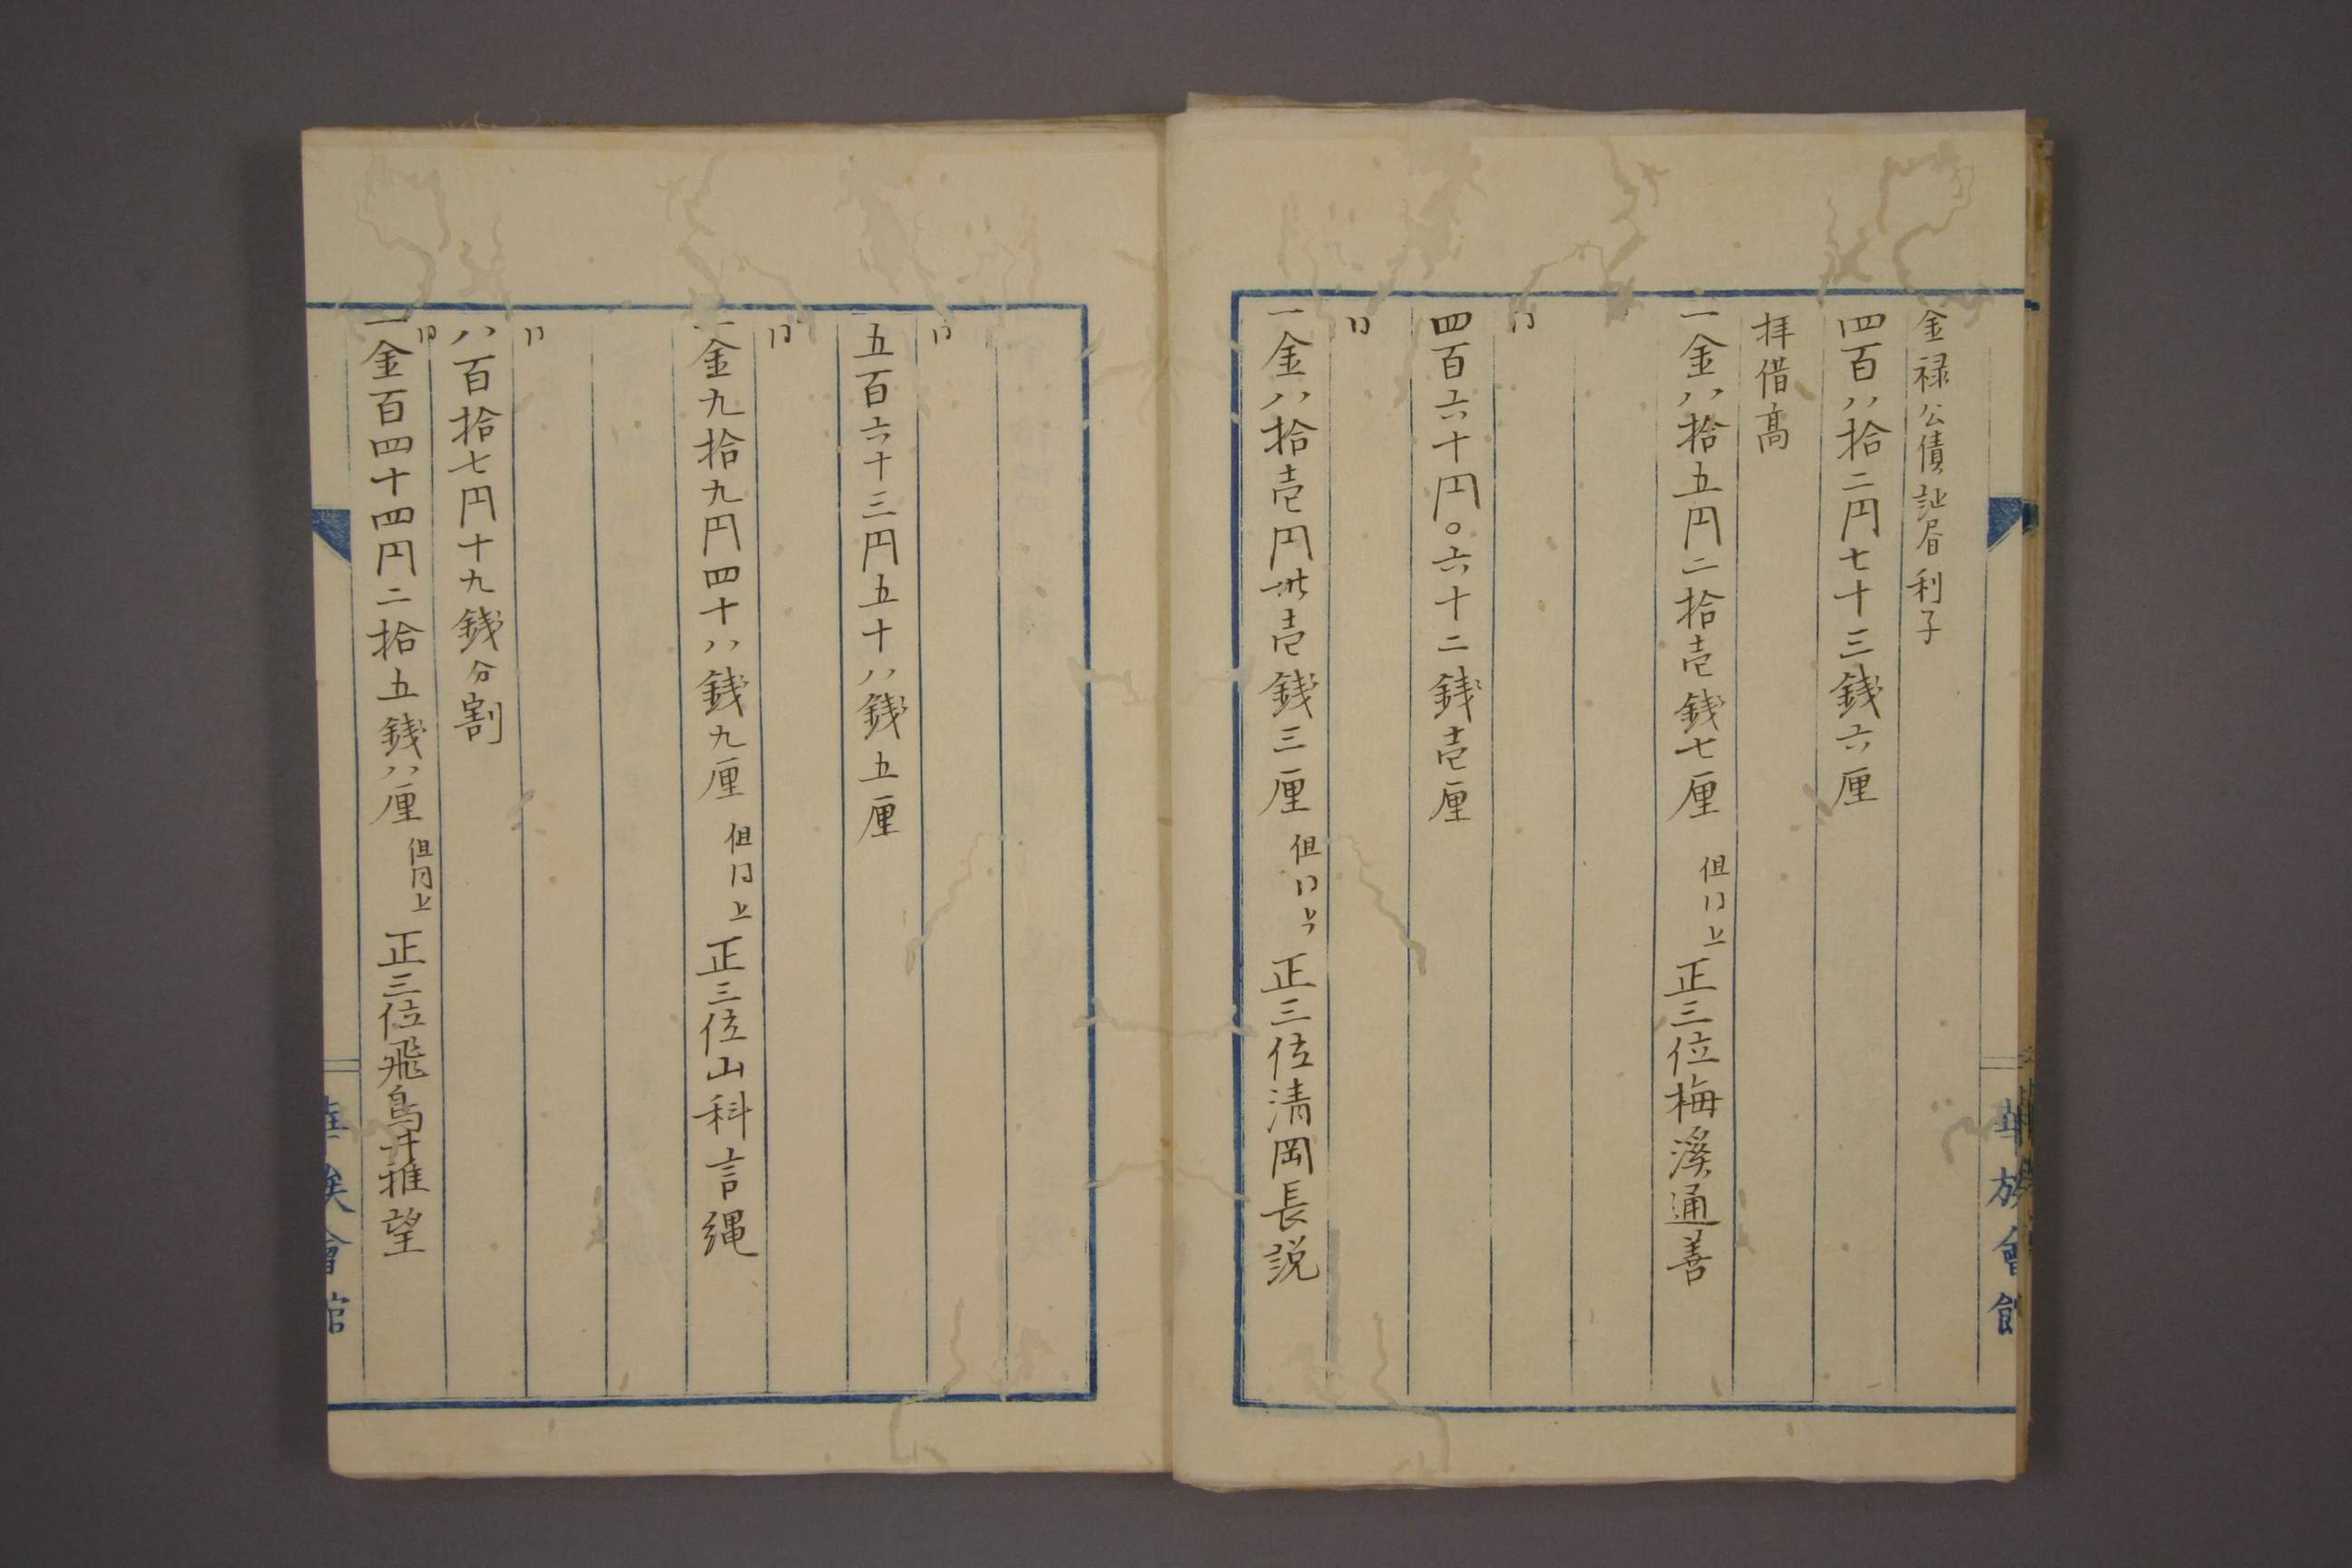 金禄公債証書利子
四百八拾二円七十三銭六厘
拝借高
一金八拾五円二拾壱銭七厘 但同上 正三位梅溪通善
同
四百六十円〇六十二銭壱厘
同
一金八拾壱円廿壱銭三厘 但同上 正三位清岡長説
華族會館
同
五百六十三円五十八銭五厘
同
一金九拾九円四十八銭九厘 但同上 正三位山科言縄
同
八百拾七円十九銭分割
同
一金百四十四円二拾五銭八厘 但同上 正三位飛鳥井雅望
華族會館